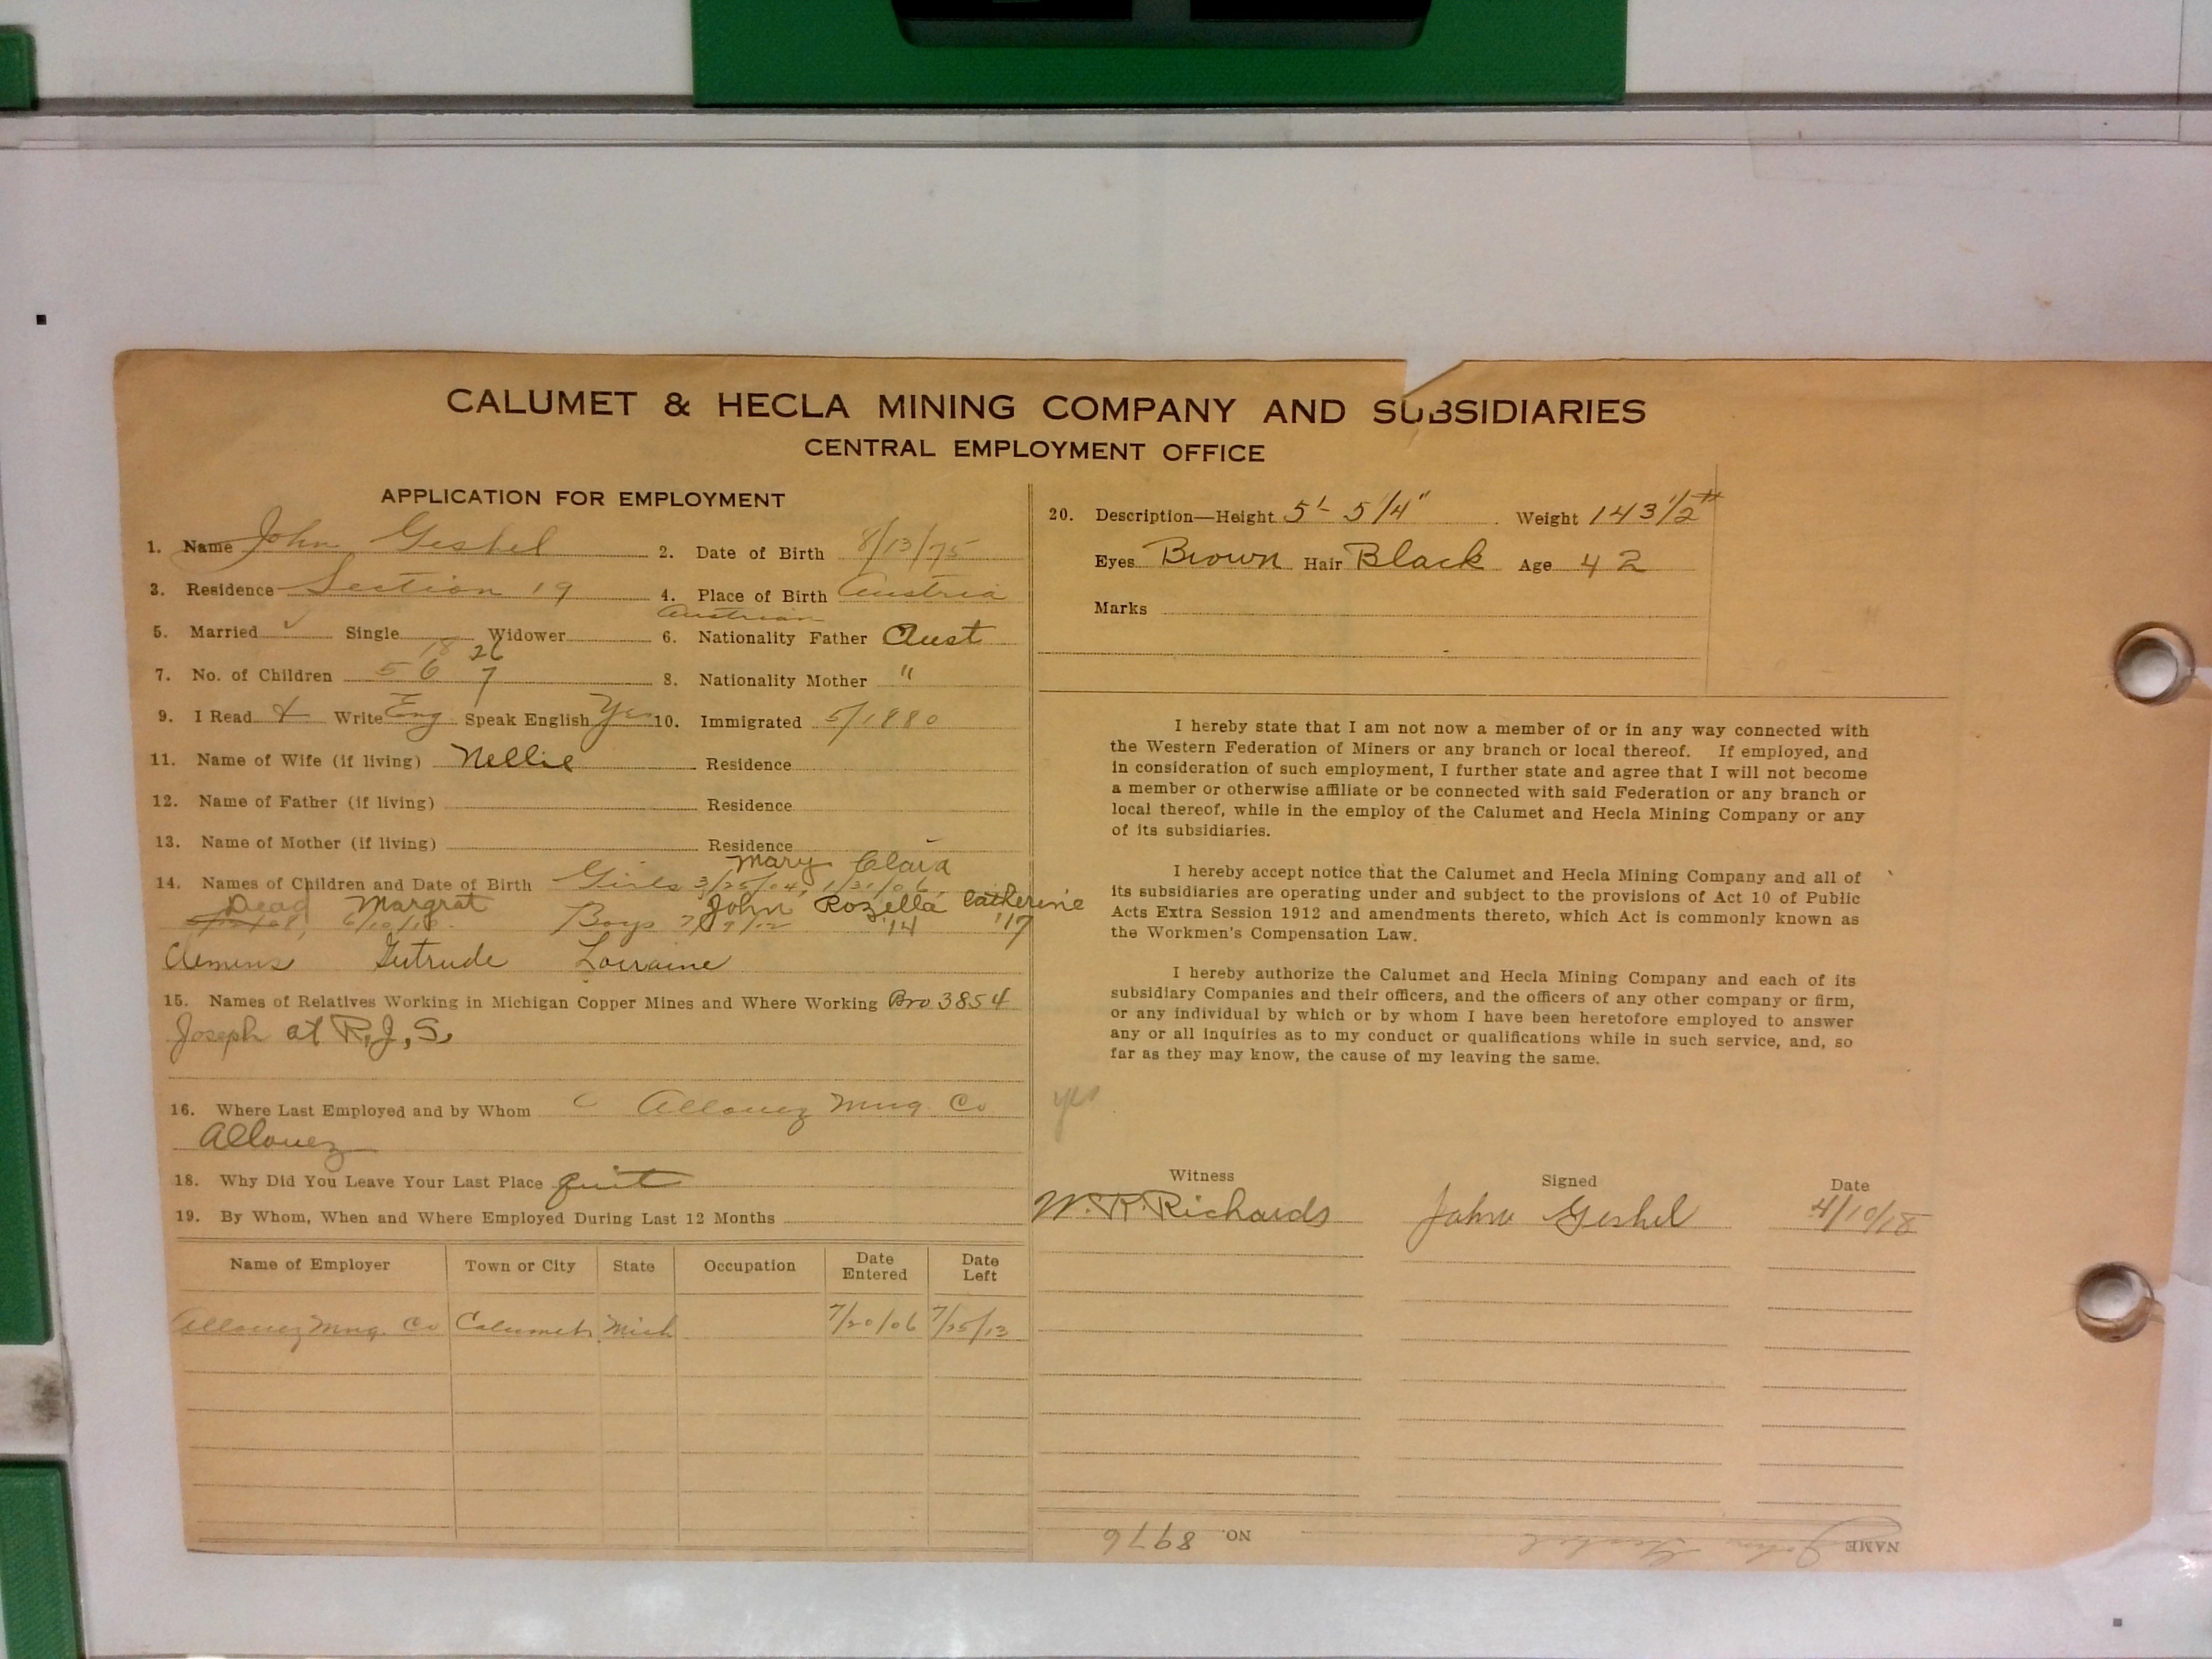 CALUMET & HECLA MINING COMPANY AND SUBSIDIARIES
CENTRAL EMPLOYMENT OFFICE
APPLICATION FOR EMPLOYMENT
1. Name John Geshel 2. Date of Birth 8/13/75
3. Residence Section 19 4. Place of Birth Austria
Austrian
5. Married ✓ Single Widower 6. Nationality Father Aust
18 26
7. No. of Children 5 6 7 8. Nationality Mother "
9. I Read & Write Eng Speak English Yes 10. Immigrated 5/1880
11. Name of Wife (if living) Nellie Residence
12. Name of Father (if living) Residence
13. Name of Mother (if living) Residence
Mary Clara
14. Names of Children and Date of Birth Girls 3/25/04, 1/31/06,
Dead Margrat John Rozella Catherine
6/10/10 Boys 7/9/12 '14 '17
Clemens Gutrude Lorraine
15. Names of Relatives Working in Michigan Copper Mines and Where Working Bro 3854
Joseph at R,J,S.
16. Where Last Employed and by Whom C Allouez Mng. Co
Allouez
18. Why Did You Leave Your Last Place quit
19. By Whom, When and Where Employed During Last 12 Months
Name of Employer Town or City State Occupation Date Entered Date Left
Allouez Mng. Co Calumet Mich 7/20/06 7/25/13
20. Description—Height 5'- 5 1/4" Weight 143 1/2 #
Eyes Brown Hair Black Age 42
Marks
I hereby state that I am not now a member of or in any way connected with
the Western Federation of Miners or any branch or local thereof. If employed, and
in consideration of such employment, I further state and agree that I will not become
a member or otherwise affiliate or be connected with said Federation or any branch or
local thereof, while in the employ of the Calumet and Hecla Mining Company or any
of its subsidiaries.
I hereby accept notice that the Calumet and Hecla Mining Company and all of
its subsidiaries are operating under and subject to the provisions of Act 10 of Public
Acts Extra Session 1912 and amendments thereto, which Act is commonly known as
the Workmen's Compensation Law.
I hereby authorize the Calumet and Hecla Mining Company and each of its
subsidiary Companies and their officers, and the officers of any other company or firm,
or any individual by which or by whom I have been heretofore employed to answer
any or all inquiries as to my conduct or qualifications while in such service, and, so
far as they may know, the cause of my leaving the same.
yes
Witness Signed Date
W. R. Richards John Geshel 4/10/18
NAME John Geshel NO. 8976